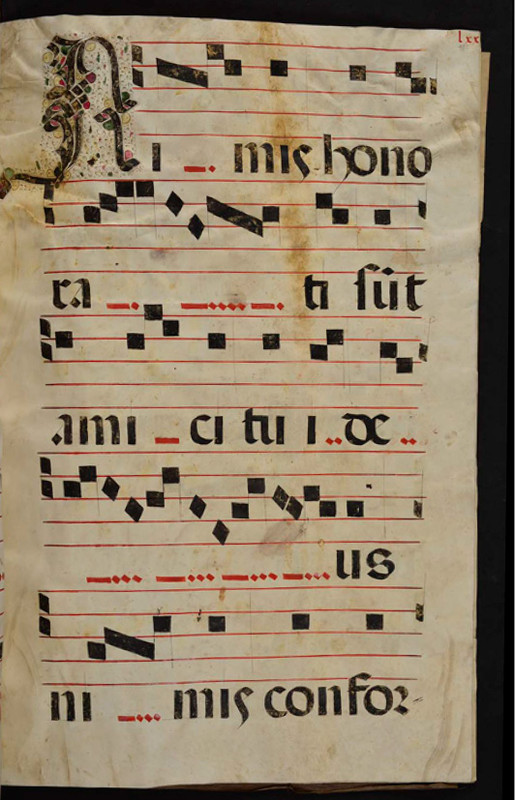 lxx
Ni mis hono
ra ti sūt
ami ci tui de
us
ni mis confor-